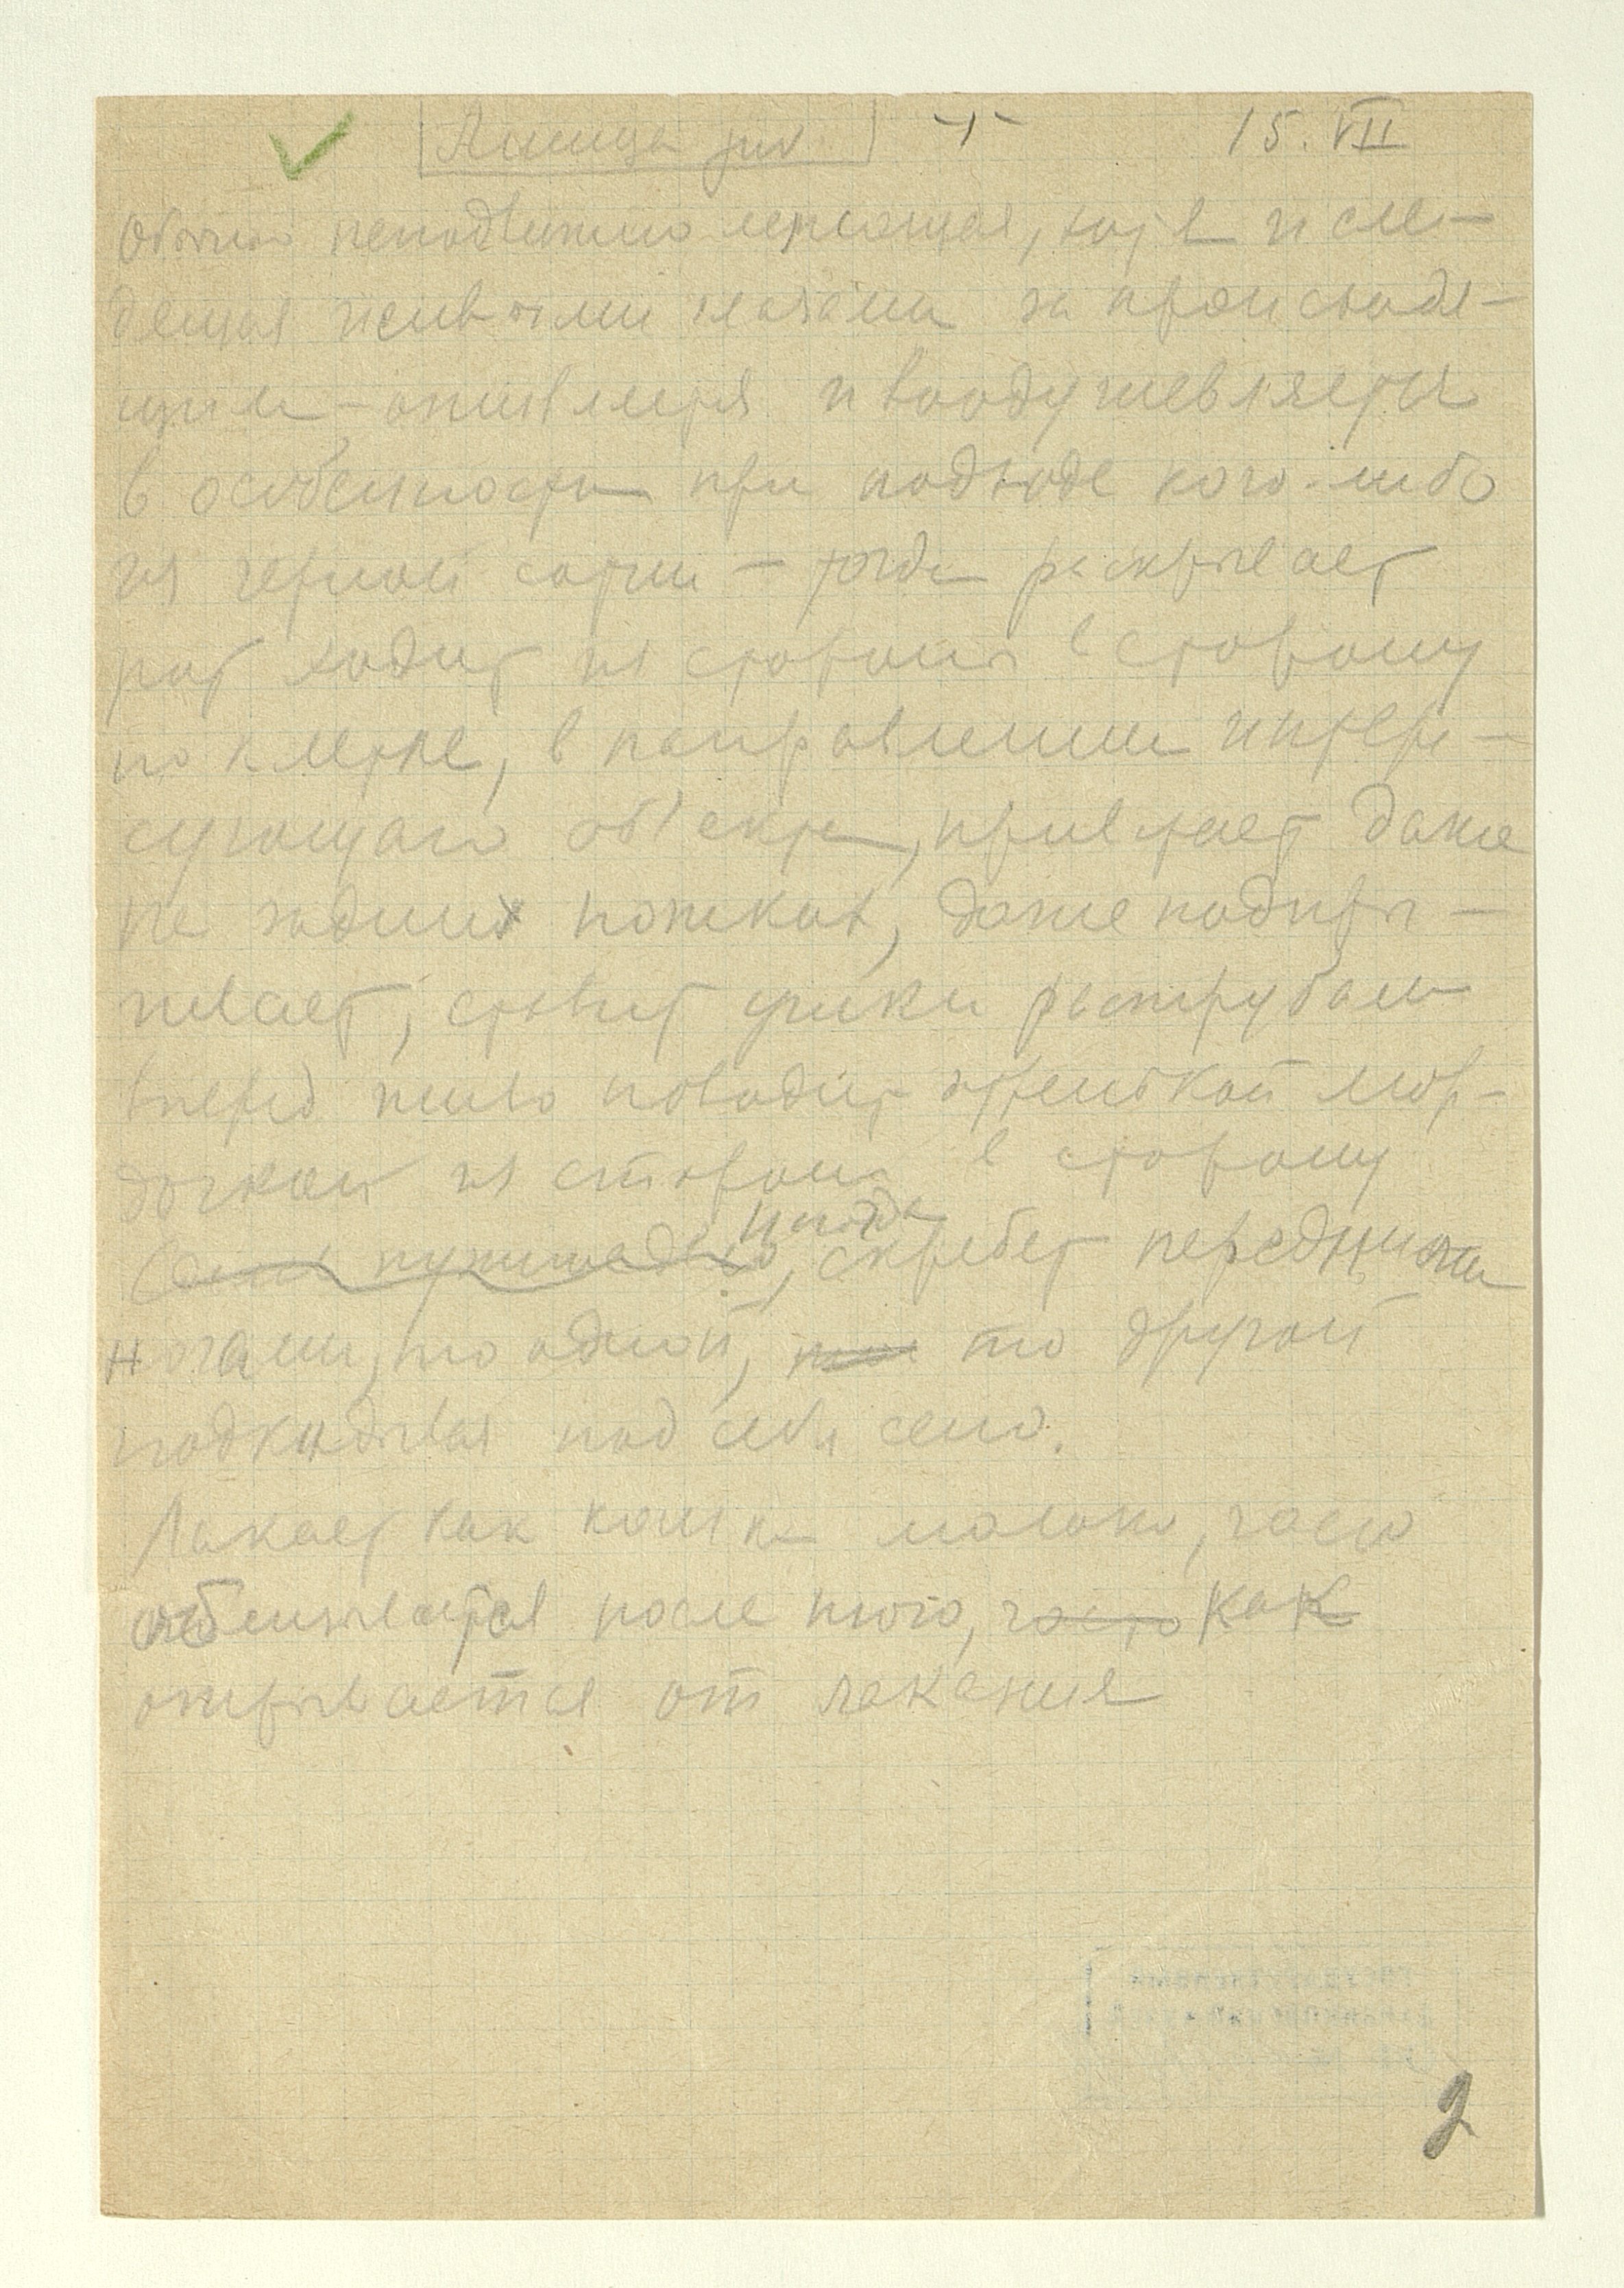 15.VII
Обычно неподвижно лежащая, хотя и сле-
дящая живыми глазами за происходя-
щим - оживляется и воодушевляется
в особенности при подходе кого-либо
из черной сотни - тогда раскрывает
рот ходит из стороны в сторону
по клетке, в направлении интере-
сующаго объекта, привстает даже
на задних ножках, даже подпры-
гивает, ставит ушки раструбами
вперед живо поводит остренькой мор-
дочкой из стороны в сторону
иногда
скребет передними
ногами, то одной, то другой
подкидывая под себя сено.
Лакает как кошка молоко, часто
облизывается после того, как
отрывается от лакания
2